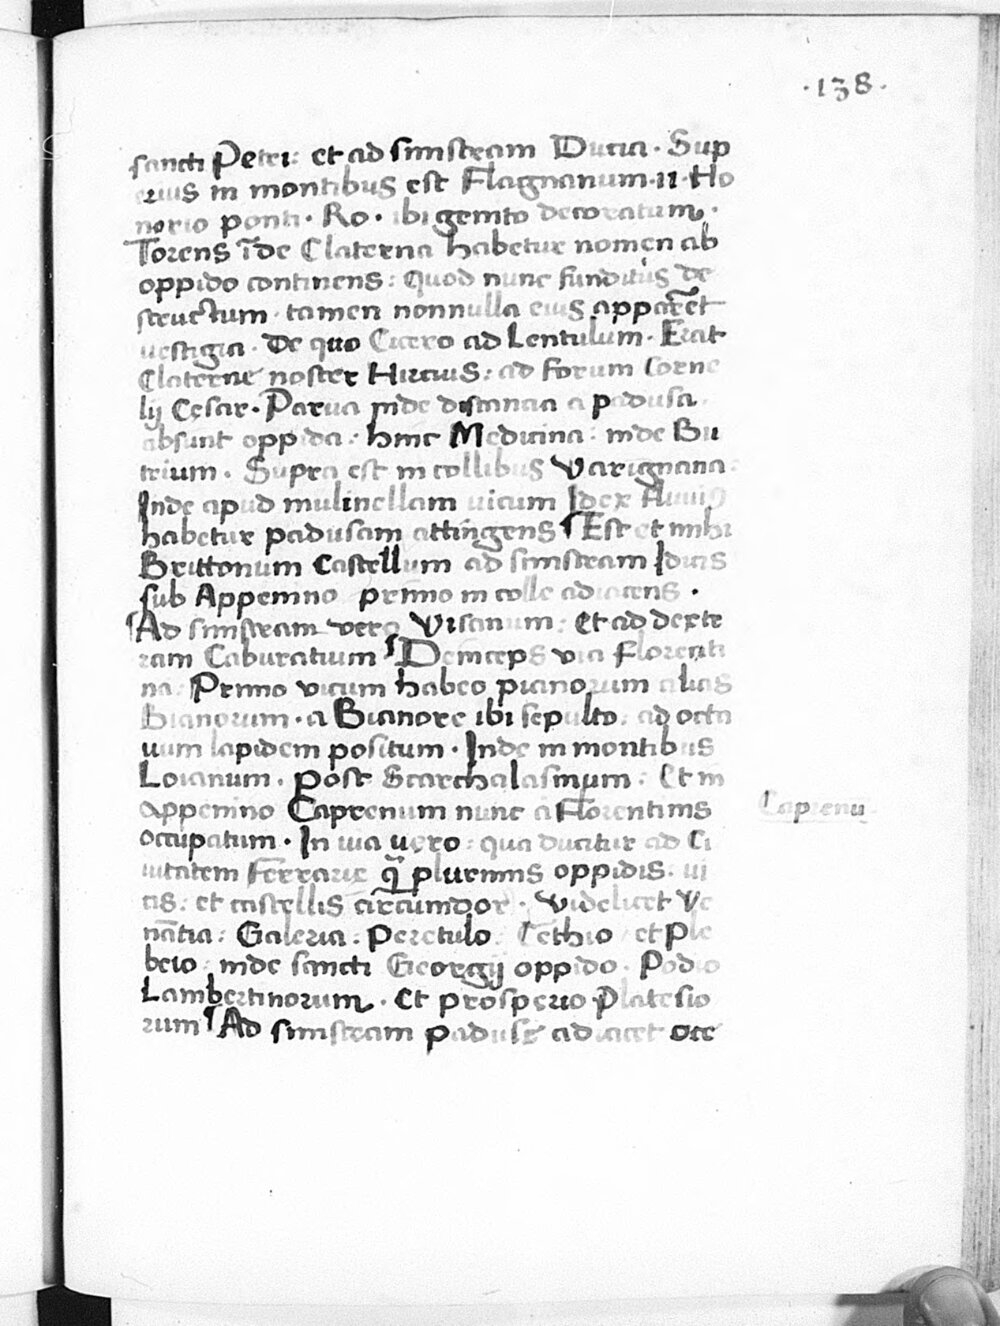 ·138·
sancti Petri: et ad sinistram Ducia · Sup
erius in montibus est Flagnanum · II · Ho
norio ponti · Ro · ibi genito decoratum ·
Torens īde Claterna habetur nomen ab
oppido continens: Quod nunc funditus de
structum · tamen nonnulla eius apparēt
uestigia · De quo Cicero ad Lentulum · Erat
Claterne noster Hircius: ad forum Corne
lij Cesar · Parua inde distancia a padusa
absunt oppida: hinc Medicina: inde Bu
trium · Supra est in collibus Varignana:
Inde apud mulinellam uicum Idex fluuiꝰ
habetur padusam attingens ¶ Est et mihi
Brittonum Castellum ad sinistram Idicis
sub Appenino primo in colle adiacens ·
¶ Ad sinistram vero Visanum: Et ad dexte
ram Caburatium ¶ Deinceps via florenti
na: Primo vicum habeo pianorum alias
Bianorum · a Bianore ibi sepulto: ad octa
uum lapidem positum · Inde in montibus
Loianum · post Scarchalasinum: Et in
appenino Caprenum nunc a Florentinis
occupatum · In uia uero: qua ducitur ad Ci
uitatem Ferrarie q̄ plurimis oppidis: ui
cis: et castellis circumdor · Videlicet Ve
nātia: Galeria: Peretulo: Cethio et Ple
beio: inde sancti Georgij oppido · Podio
Lambertinorum · Et prosperio Platesio
rum ¶ Ad sinistram paduse adiacet occ
Caprenū